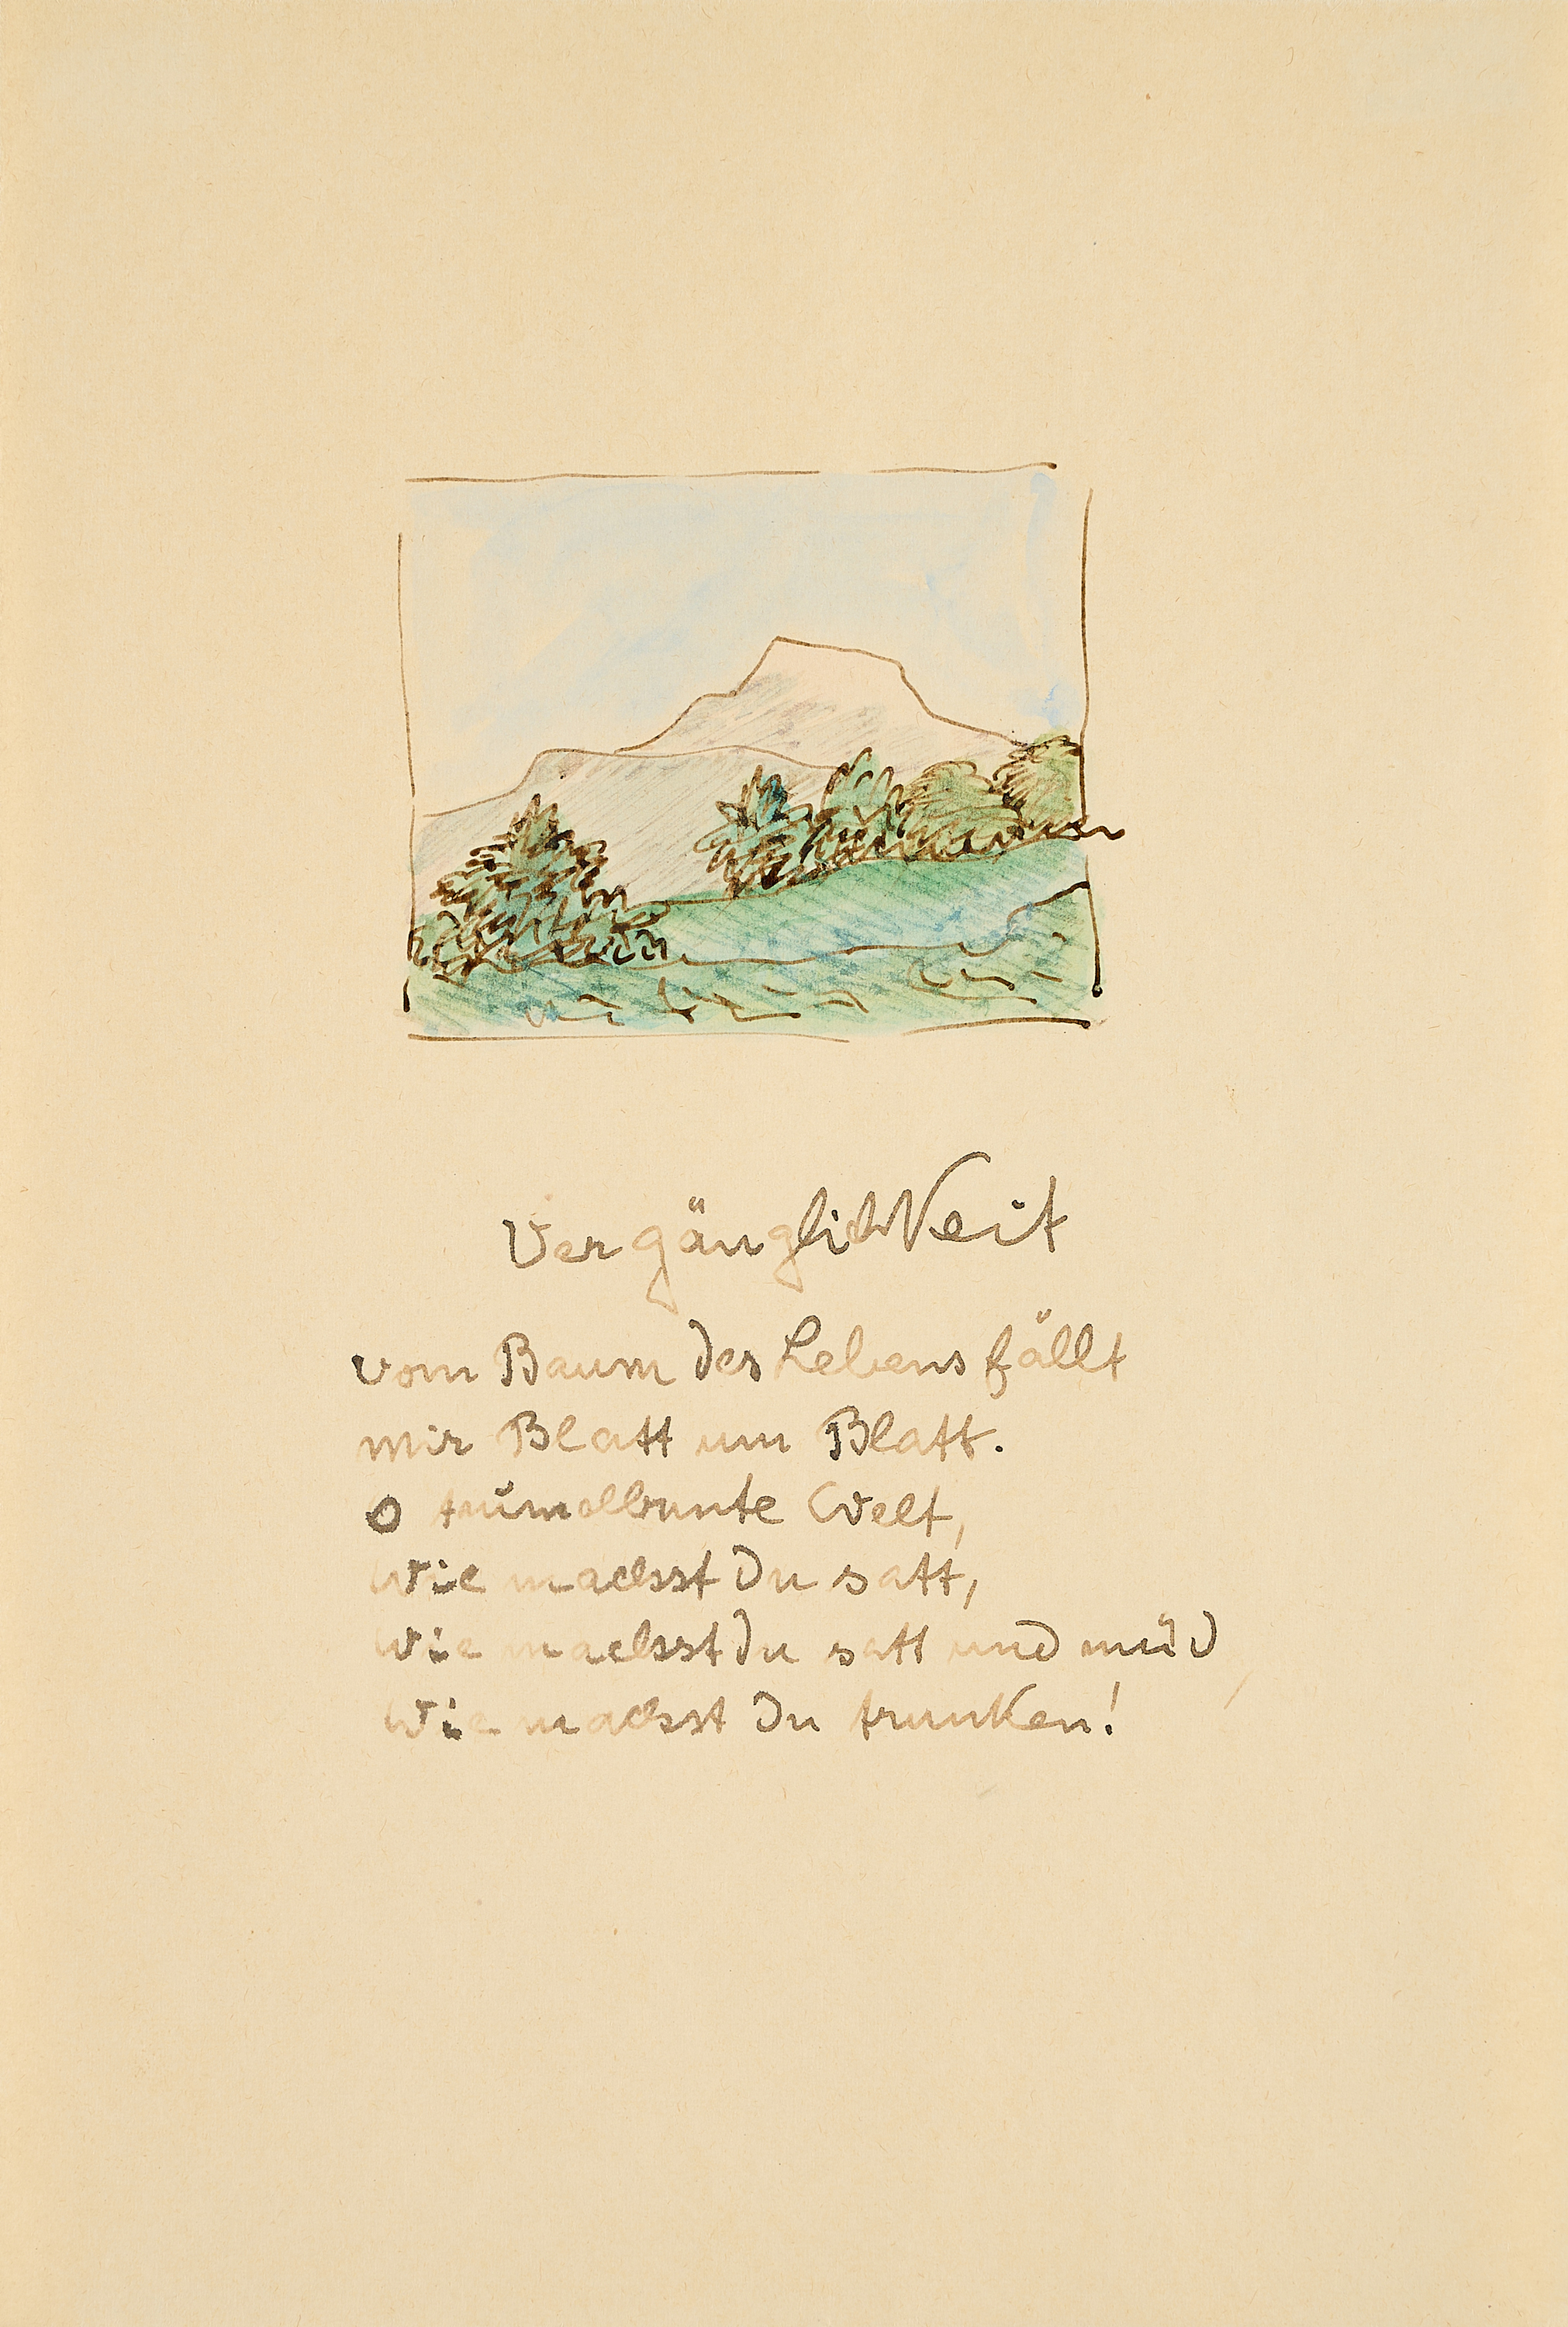 Vergänglichkeit
vom Baum des Lebens fällt
mir Blatt um Blatt.
O tumelbunte Welt,
wie machst Du satt,
wie machst Du satt und müd,
wie machst Du trunken!